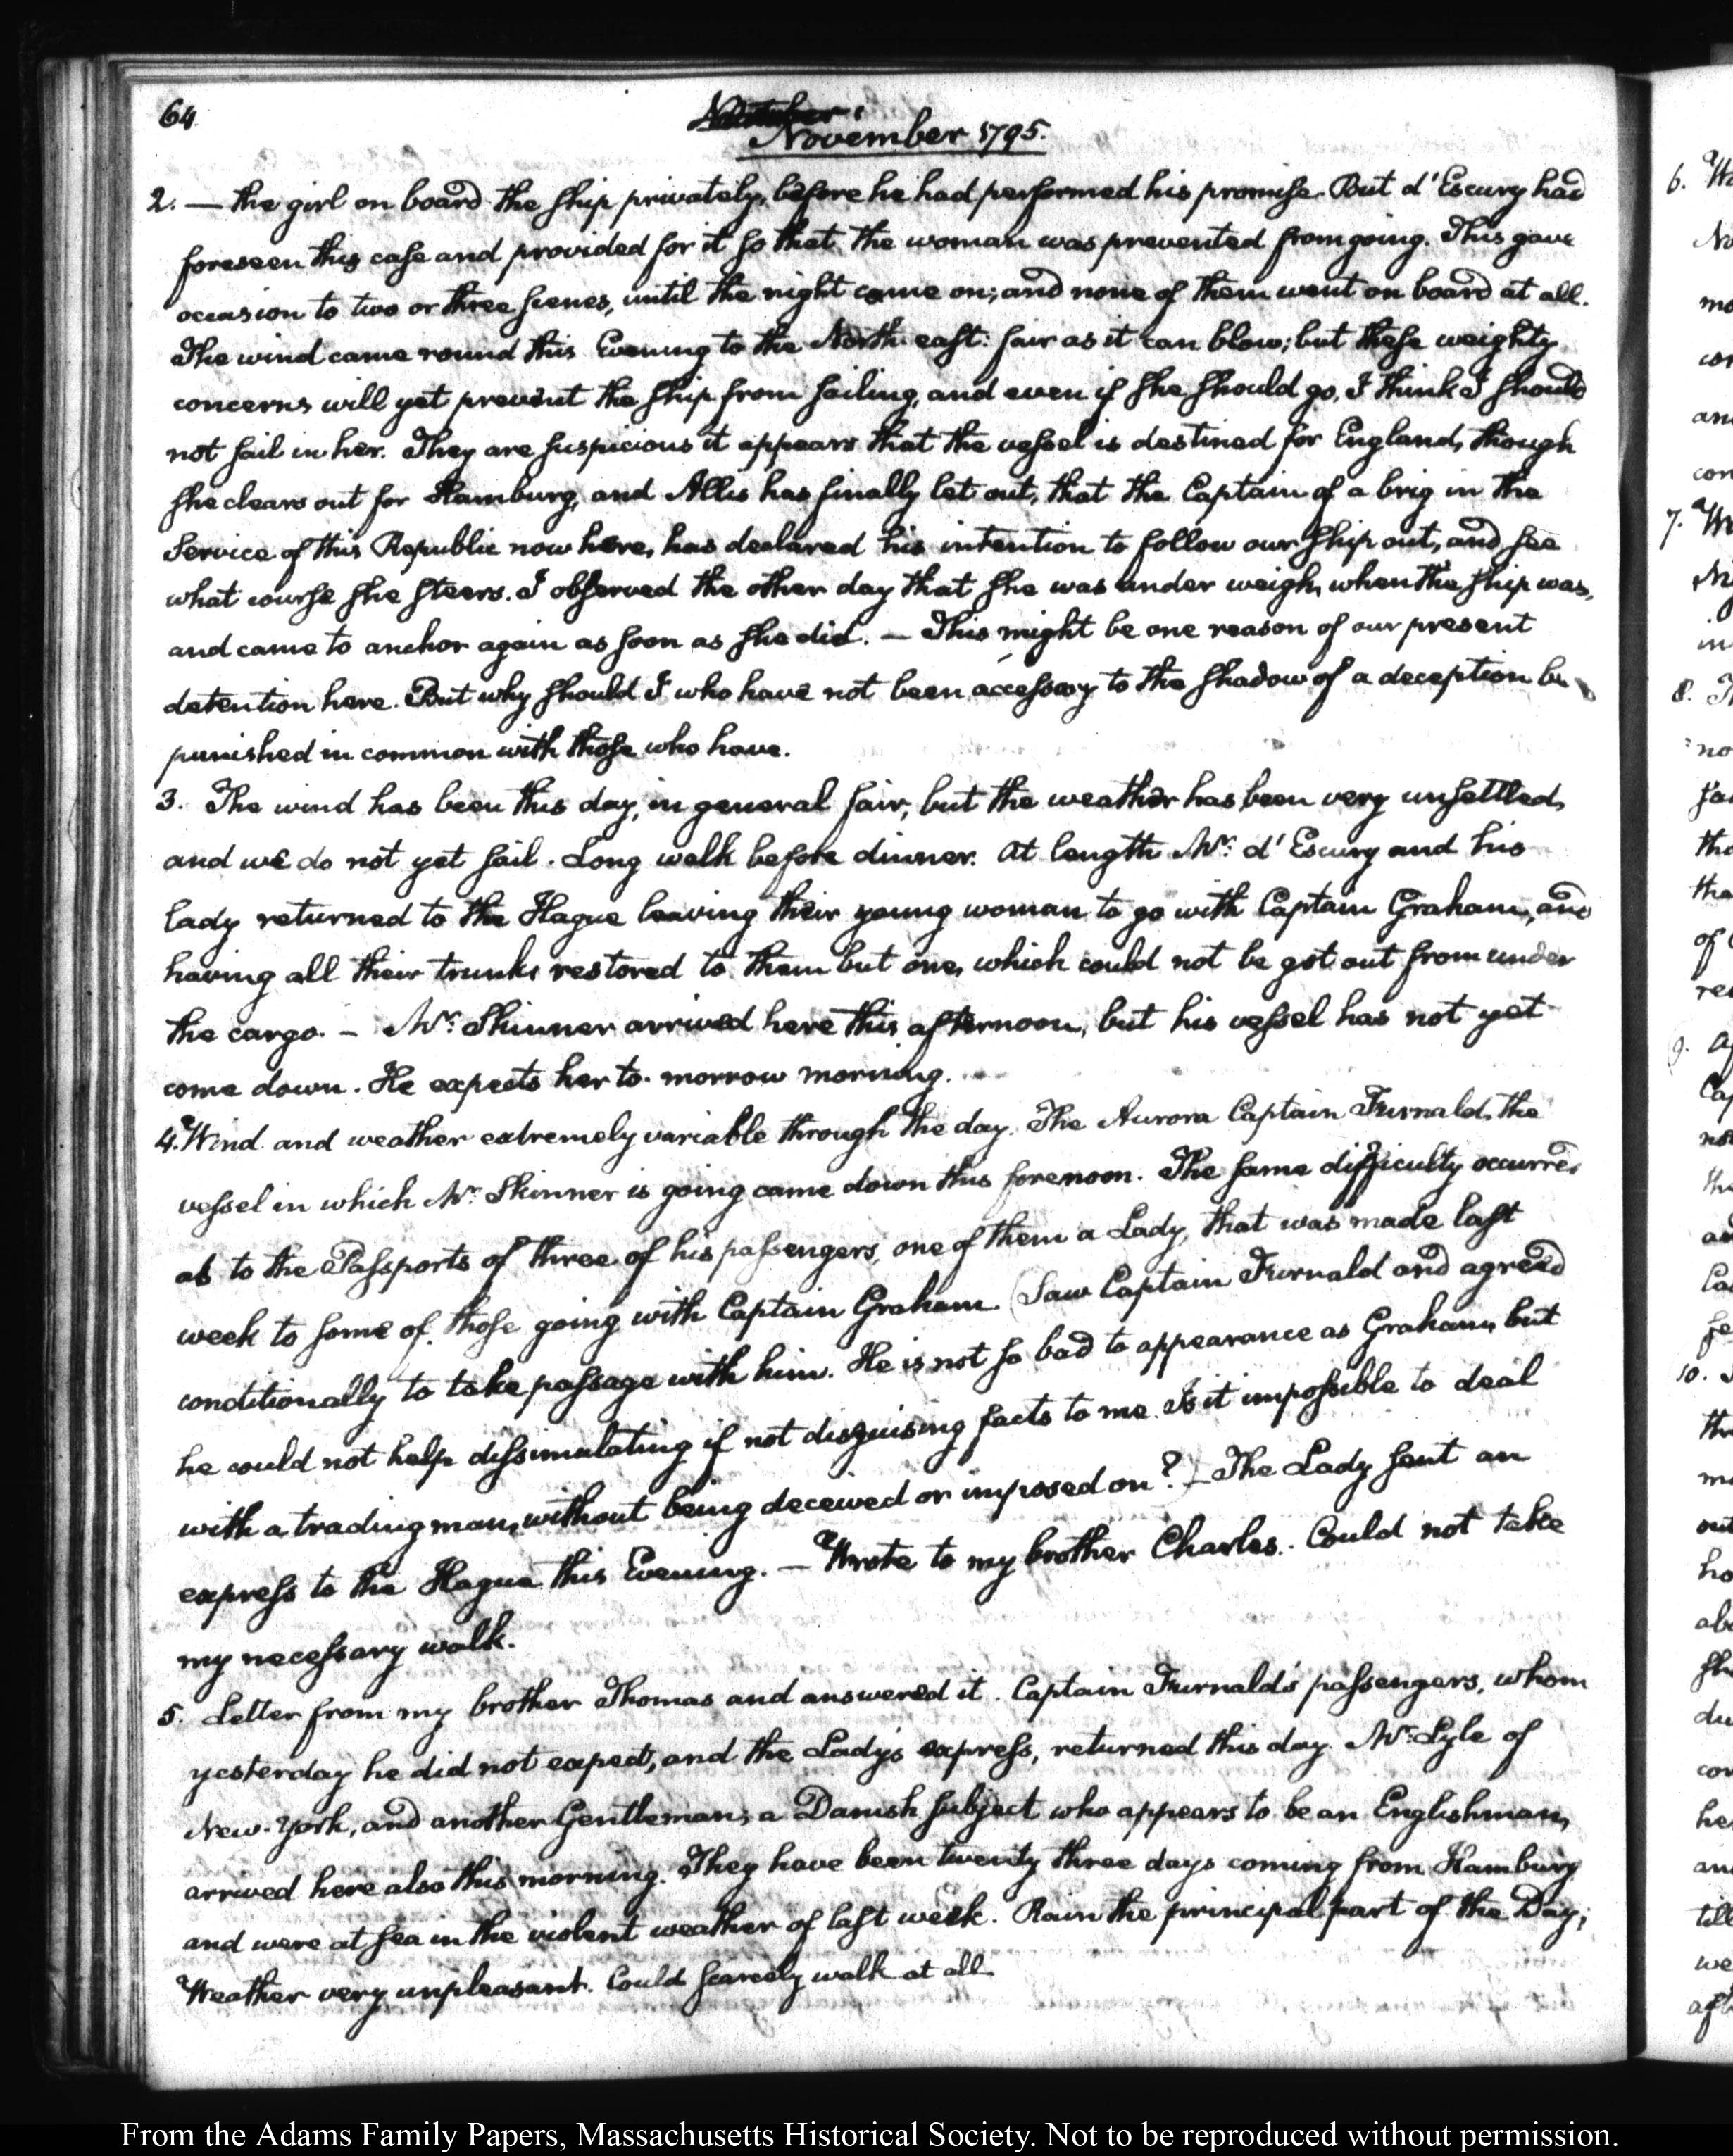 64
November 1795.
2. — the girl on board the ship privately, before he had performed his promise. But d'Escury had
foreseen this case and provided for it so that the woman was prevented from going. This gave
occasion to two or three scenes, until the night came on; and none of them went on board at all.
The wind came round this Evening to the North east: fair as it can blow; but these weighty
concerns will yet prevent the ship from sailing, and even if she should go, I think I should
not sail in her. They are suspicious it appears that the vessel is destined for England, though
she clears out for Hamburg, and Allis has finally let out, that the Captain of a brig in the
service of this Republic now here, has declared his intention to follow our ship out, and see
what course she steers. I observed the other day that she was under weigh, when the ship was,
and came to anchor again as soon as she did. — This might be one reason of our present
detention here. But why should I who have not been accessory to the shadow of a deception be
punished in common with those who have.
3. The wind has been this day, in general fair, but the weather has been very unsettled,
and we do not yet sail. Long walk before dinner. At length Mr. d'Escury and his
lady returned to the Hague leaving their young woman to go with Captain Graham, and
having all their trunks restored to them but one, which could not be got out from under
the cargo. — Mr. Skinner arrived here this afternoon, but his vessel has not yet
come down. He expects her to-morrow morning.
4. Wind and weather extremely variable through the day. The Aurora Captain Furnald, the
vessel in which Mr. Skinner is going came down this forenoon. The same difficulty occurred
as to the Passports of three of his passengers, one of them a Lady, that was made last
week to some of those going with Captain Graham. (Saw Captain Furnald and agreed
conditionally to take passage with him. He is not so bad to appearance as Graham, but
he could not help dissimulating if not disguising facts to me. Is it impossible to deal
with a trading man, without being deceived or imposed on?) — The Lady sent an
express to the Hague this Evening. — Wrote to my brother Charles. Could not take
my necessary walk.
5. Letter from my brother Thomas and answered it. Captain Furnald's passengers, whom
yesterday he did not expect, and the Lady's express, returned this day. Mr. Lyle of
New-York, and another Gentleman, a Danish subject who appears to be an Englishman,
arrived here also this morning. They have been twenty three days coming from Hamburg
and were at sea in the violent weather of last week. Rain the principal part of the Day;
Weather very unpleasant. Could scarcely walk at all.
From the Adams Family Papers, Massachusetts Historical Society. Not to be reproduced without permission.